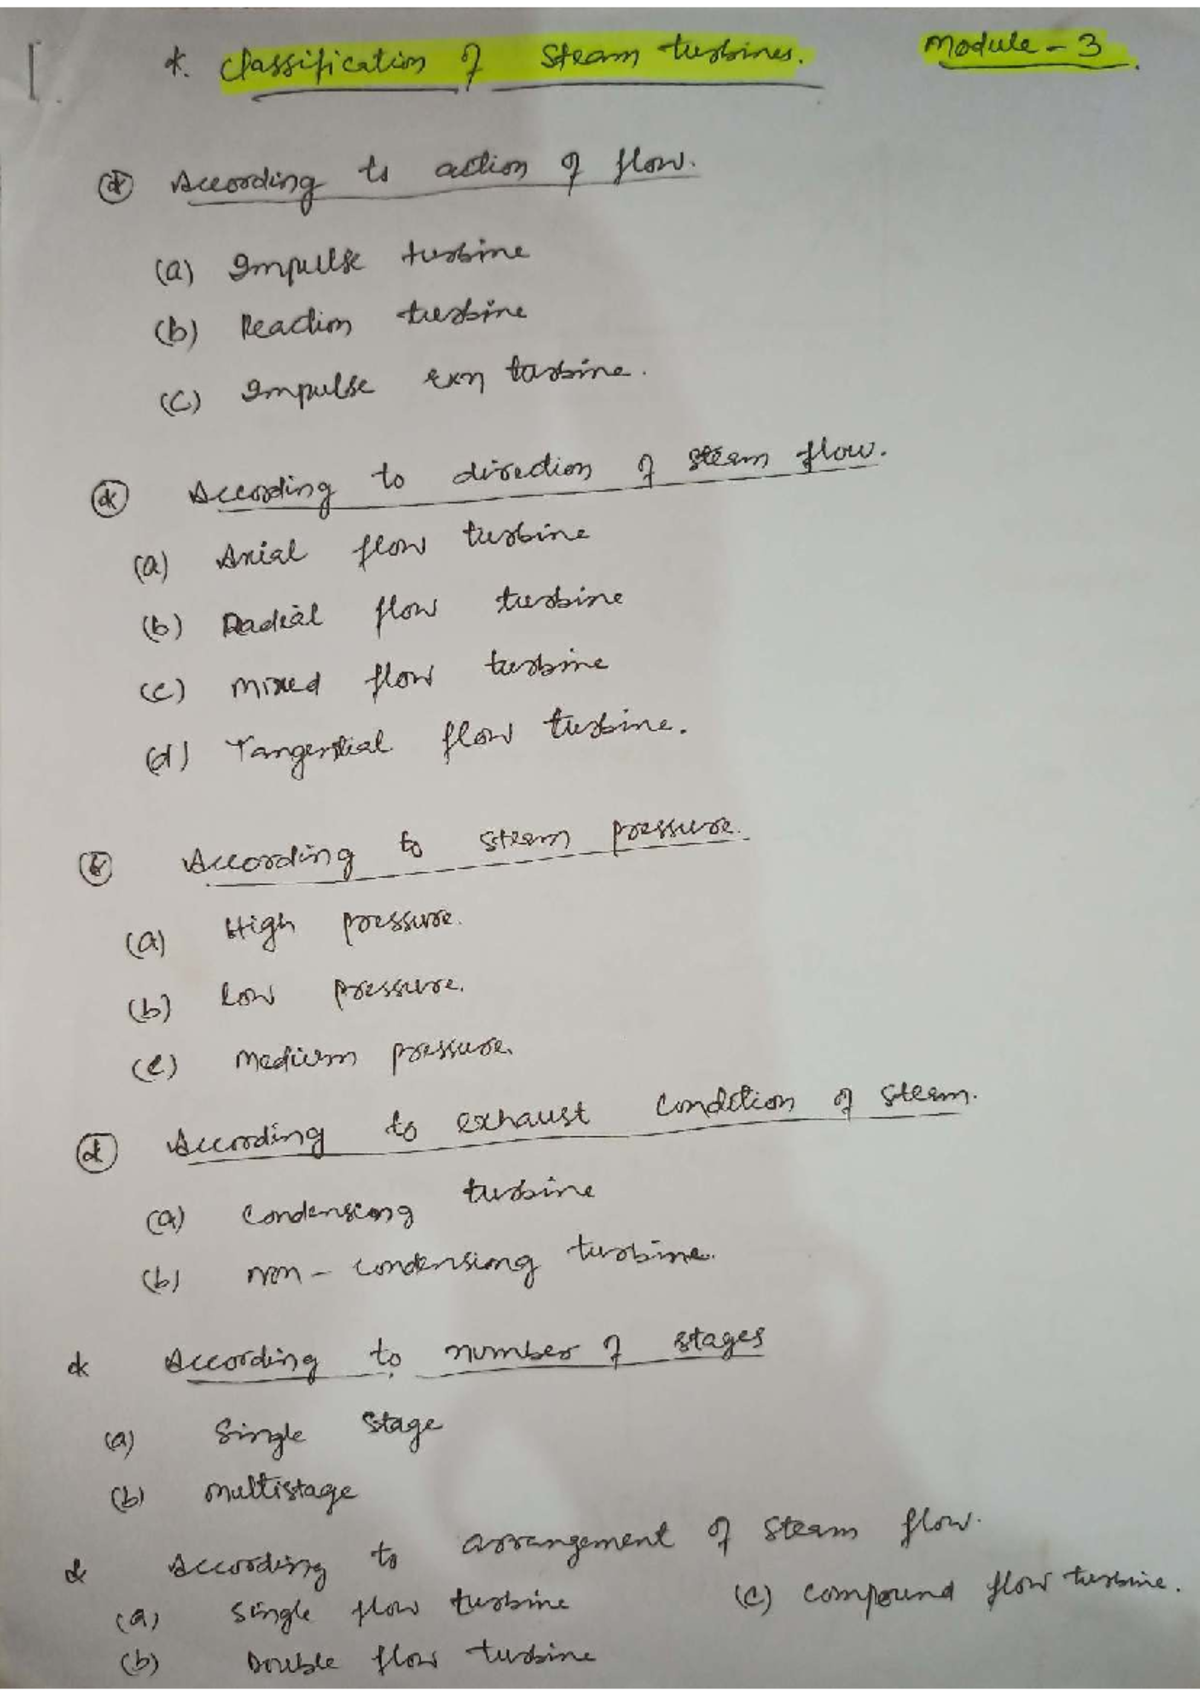 *. Classification of Steam turbines. Module - 3.
* According to action of flow.
(a) Impulse turbine
(b) Reaction turbine
(c) Impulse rxn turbine.
* According to direction of steam flow.
(a) Axial flow turbine
(b) Radial flow turbine
(c) Mixed flow turbine
(d) Tangential flow turbine.
* According to steam pressure.
(a) High pressure.
(b) Low pressure.
(c) Medium pressure.
* According to exhaust condition of steam.
(a) Condensing turbine
(b) Non - condensing turbine.
* According to number of stages
(a) Single stage
(b) Multistage
* According to arrangement of steam flow.
(a) Single flow turbine (c) compound flow turbine.
(b) Double flow turbine